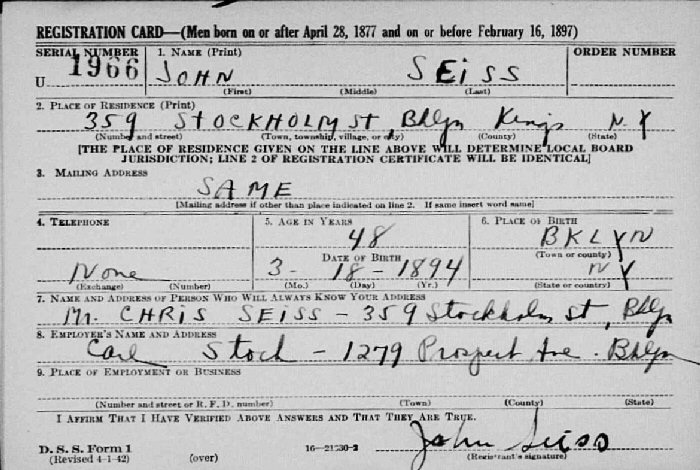 REGISTRATION CARD—(Men born on or after April 28, 1877 and on or before February 16, 1897)
SERIAL NUMBER 1. NAME (Print) ORDER NUMBER
U 1966 JOHN SEISS
(First) (Middle) (Last)
2. PLACE OF RESIDENCE (Print)
359 STOCKHOLM St, Bklyn Kings N Y
(Number and street) (Town, township, village, or city) (County) (State)
[THE PLACE OF RESIDENCE GIVEN ON THE LINE ABOVE WILL DETERMINE LOCAL BOARD
JURISDICTION; LINE 2 OF REGISTRATION CERTIFICATE WILL BE IDENTICAL]
3. MAILING ADDRESS
SAME
[Mailing address if other than place indicated on line 2. If same insert word same]
4. TELEPHONE 5. AGE IN YEARS 6. PLACE OF BIRTH
48 BKLYN
DATE OF BIRTH (Town or county)
None 3 - 18 - 1894 N Y
(Exchange) (Number) (Mo.) (Day) (Yr.) (State or country)
7. NAME AND ADDRESS OF PERSON WHO WILL ALWAYS KNOW YOUR ADDRESS
Mr. CHRIS SEISS - 359 Stockholm St, Bklyn
8. EMPLOYER'S NAME AND ADDRESS
Carl Stoch - 1279 Prospect Ave. Bklyn
9. PLACE OF EMPLOYMENT OR BUSINESS
(Number and street or R. F. D. number) (Town) (County) (State)
I AFFIRM THAT I HAVE VERIFIED ABOVE ANSWERS AND THAT THEY ARE TRUE.
D. S. S. Form 1 John Seiss
(Revised 4-1-42) (over) 16—21630-2 (Registrant's signature)